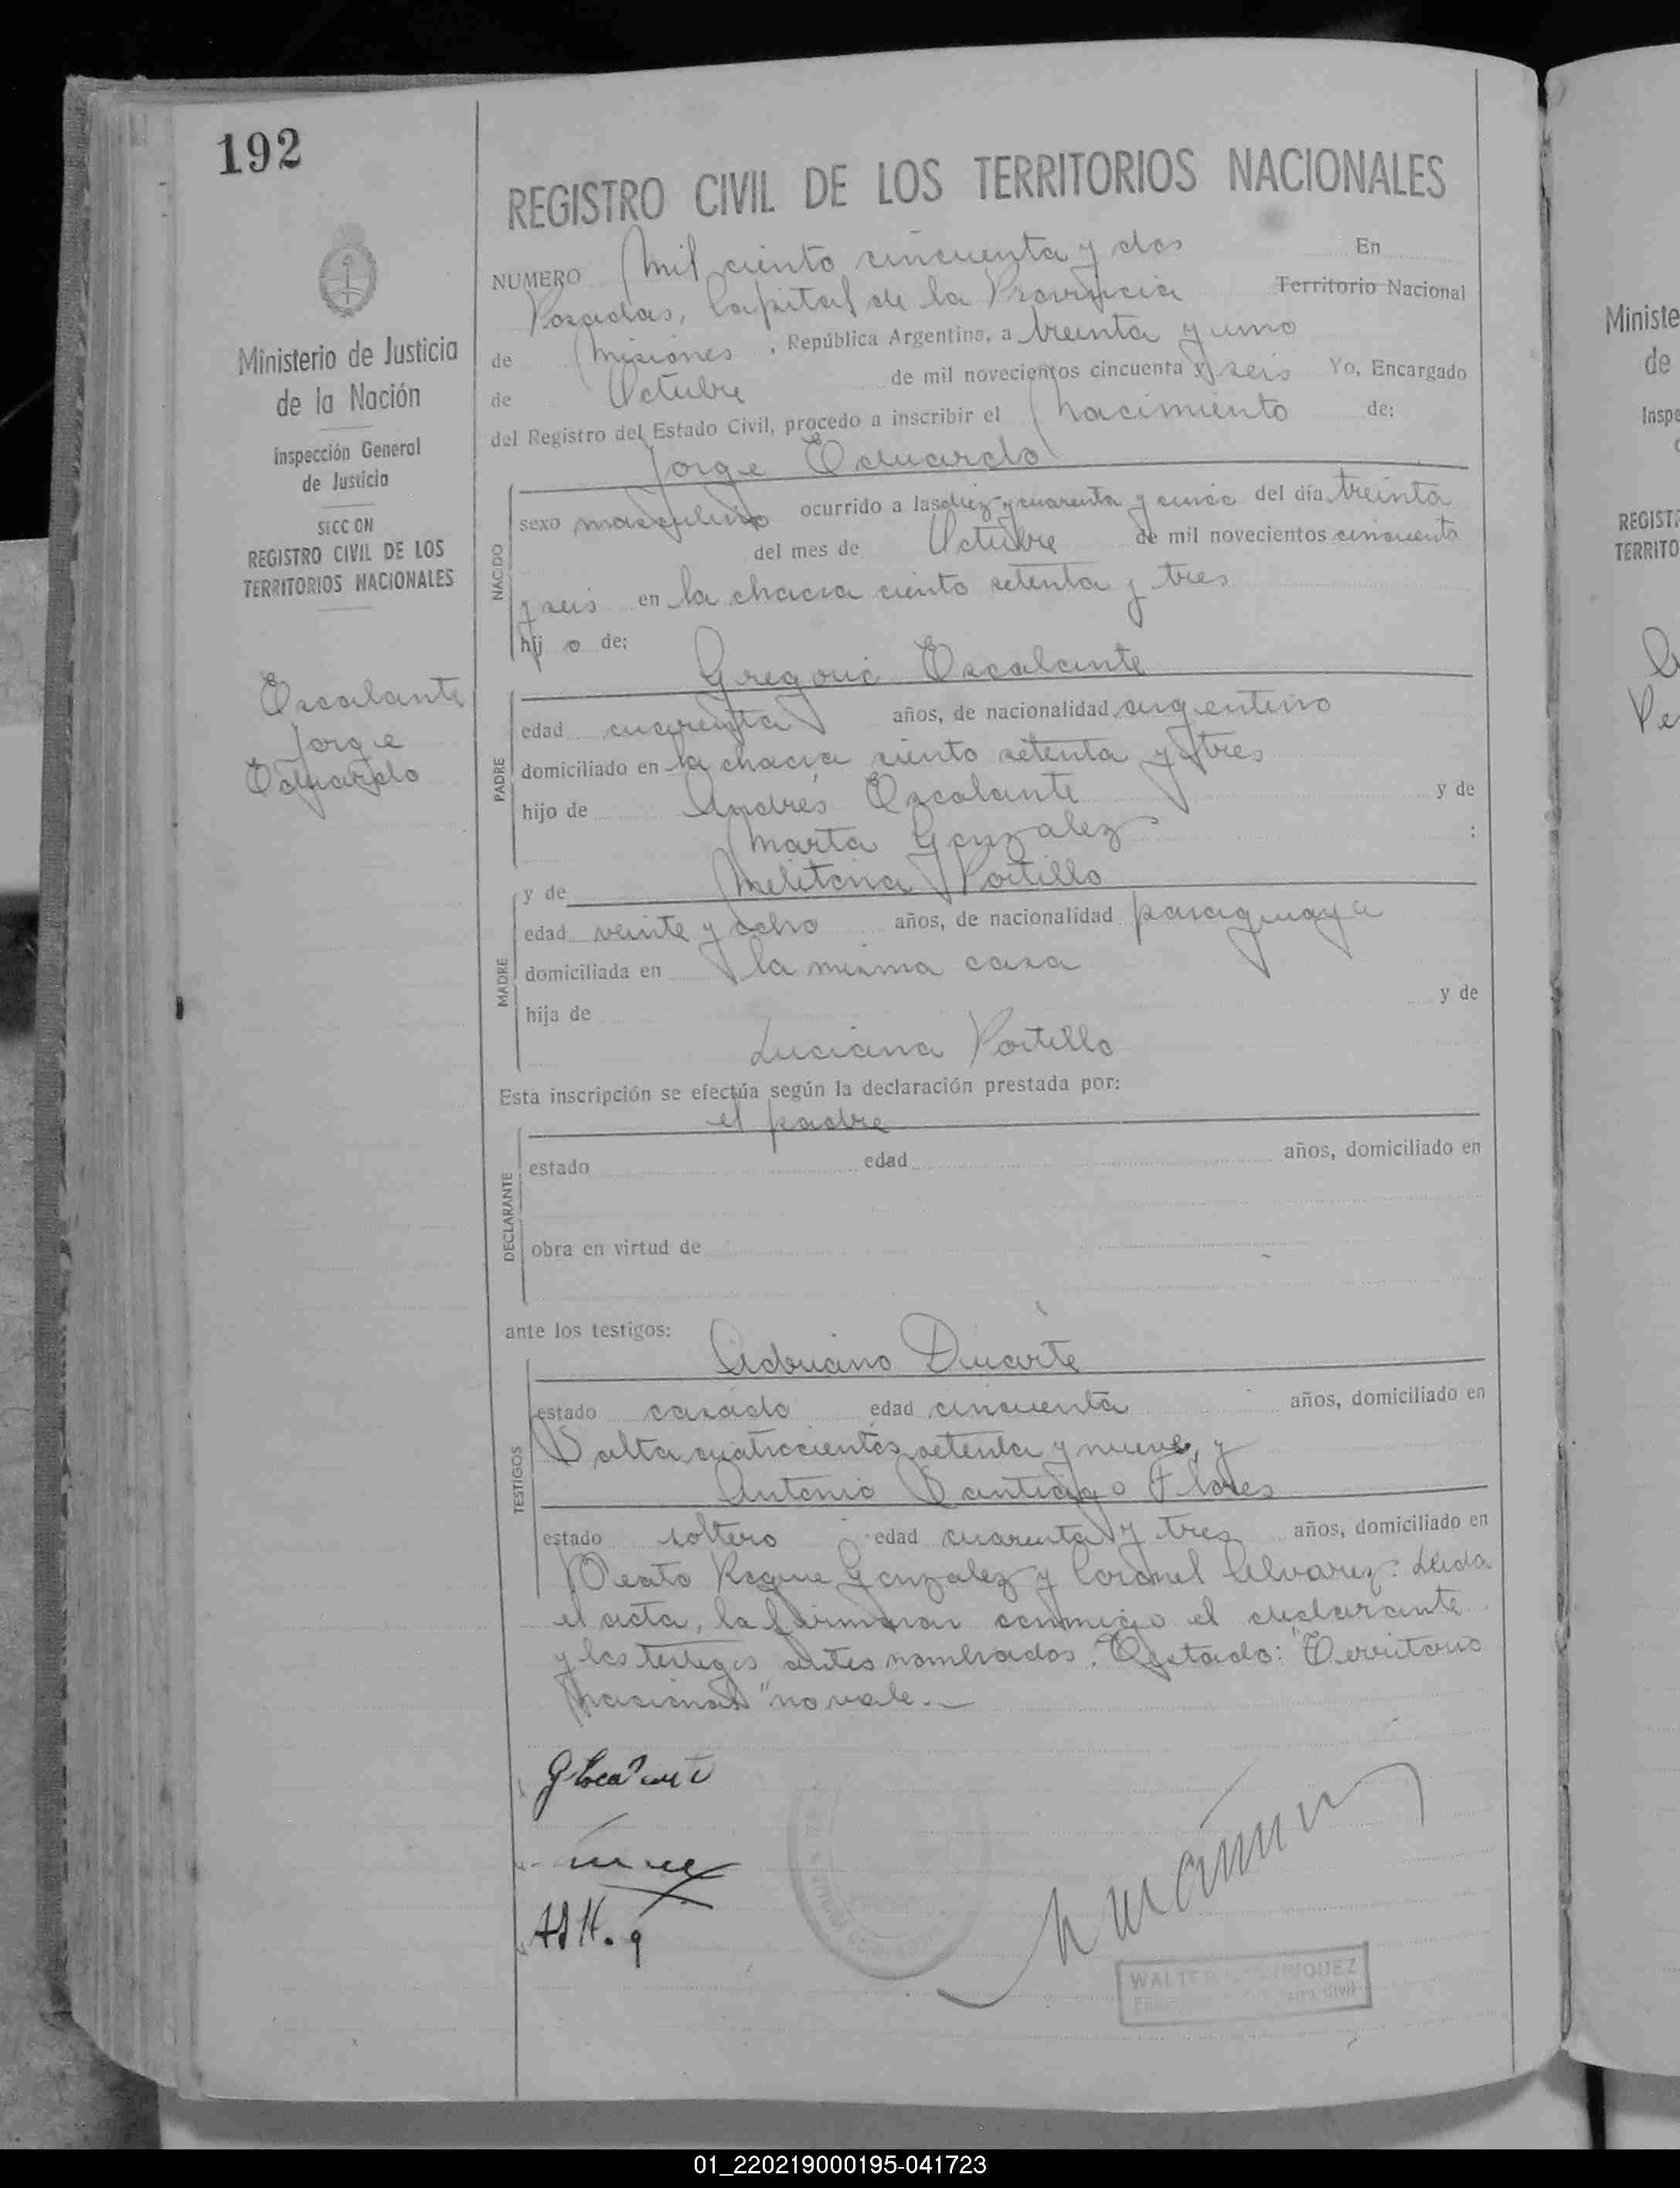 192
REGISTRO CIVIL DE LOS TERRITORIOS NACIONALES
NUMERO Mil ciento cincuenta y dos En
Posadas, Capital de la Provincia Territorio Nacional
de Misiones, República Argentina, a treinta y uno
de Octubre de mil novecientos cincuenta y seis Yo, Encargado
del Registro del Estado Civil, procedo a inscribir el nacimiento de:
Jorge Eduardo
NACIDO
sexo masculino ocurrido a las diez y cuarenta y cinco del día treinta
del mes de Octubre de mil novecientos cincuenta
y seis en la chacra ciento setenta y tres
hijo de:
Gregorio Escalante
PADRE
edad cuarenta años, de nacionalidad argentino
domiciliado en la chacra ciento setenta y tres
hijo de Andrés Escalante y de
Marta Gonzalez :
y de Melitona Portillo
MADRE
edad veinte y ocho años, de nacionalidad paraguaya
domiciliada en la misma casa
hija de y de
Luciana Portillo
Esta inscripción se efectúa según la declaración prestada por:
el padre
DECLARANTE
estado edad años, domiciliado en
obra en virtud de
ante los testigos:
Adriano Duarte
TESTIGOS
estado casado edad cincuenta años, domiciliado en
Salta cuatrocientos setenta y nueve, y
Antonio Santiago Flores
estado soltero edad cuarenta y tres años, domiciliado en
Beato Roque Gonzalez y Coronel Alvarez. Leida
el acta, la firmaron conmigo el declarante
y los testigos antes nombrados. Testado: "Territorio
Nacional" no vale.-
Ministerio de Justicia
de la Nación
Inspección General
de Justicia
SECCION
REGISTRO CIVIL DE LOS
TERRITORIOS NACIONALES
Escalante
Jorge
Eduardo
WALTER
Ministe
de
Inspe
REGISTR
TERRITO
01_220219000195-041723